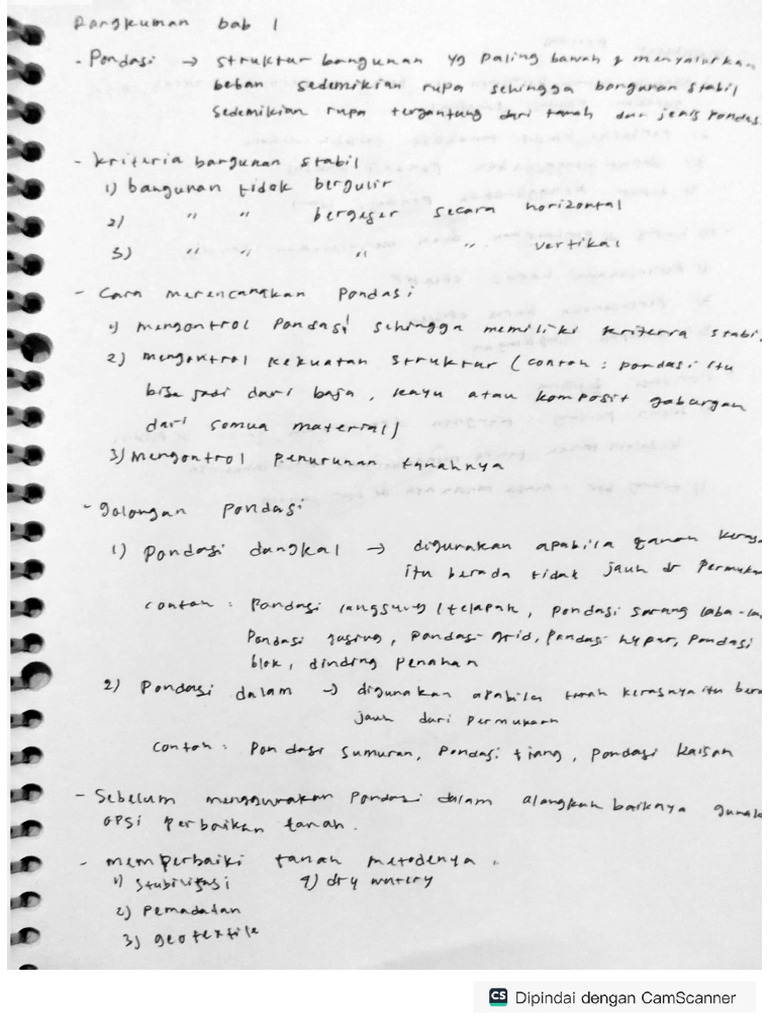 Rangkuman bab 1
- Pondasi → struktur bangunan yg paling bawah & menyalurkan
beban sedemikian rupa sehingga bangunan stabil
sedemikian rupa tergantung dari tanah dan jenis pondas
- kriteria bangunan stabil
1) bangunan tidak bergulir
2) " " bergeser secara horizontal
3) " " " " vertikal
- Cara merencanakan pondasi
1) mengontrol pondasi sehingga memiliki kriteria stabi
2) mengontrol kekuatan struktur (contoh : pondasi itu
bisa jadi dari baja, kayu atau komposit gabungan
dari semua material)
3) mengontrol penurunan tanahnya
- golongan pondasi
1) pondasi dangkal → digunakan apabila tanah keras
itu berada tidak jauh dr permuka
contoh : Pondasi langsung / telapak, pondasi sarang laba-la
Pondasi gasing, pondasi grid, pondasi hypar, pondasi
blok, dinding penahan
2) Pondasi dalam → digunakan apabila tanah kerasnya itu bera
jauh dari permukaan
contoh : Pondasi sumuran, pondasi tiang, pondasi kaison
- Sebelum menggunakan pondasi dalam alangkah baiknya guna
opsi perbaikan tanah.
- memperbaiki tanah metodenya
1) stabilisasi 4) dry
2) Pemadatan
3) geotextile
CS Dipindai dengan CamScanner